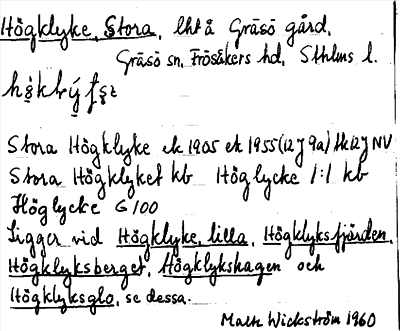 Högklyke, Stora, lht å Gräsö gård,
Gräsö sn, Frösåkers hd, Sthlms l.
Stora Högklyke ek 1905 ek 1955 (12 J 9a) Hk 12 J NV
Stora Högklyket kb Höglycke 1:1 kb
Höglycke G 100
Ligger vid Högklyke, lilla, Högklyksfjärden,
Högklyksberget, Högklykshagen och
Högklyksglo, se dessa.
Wickström 1960